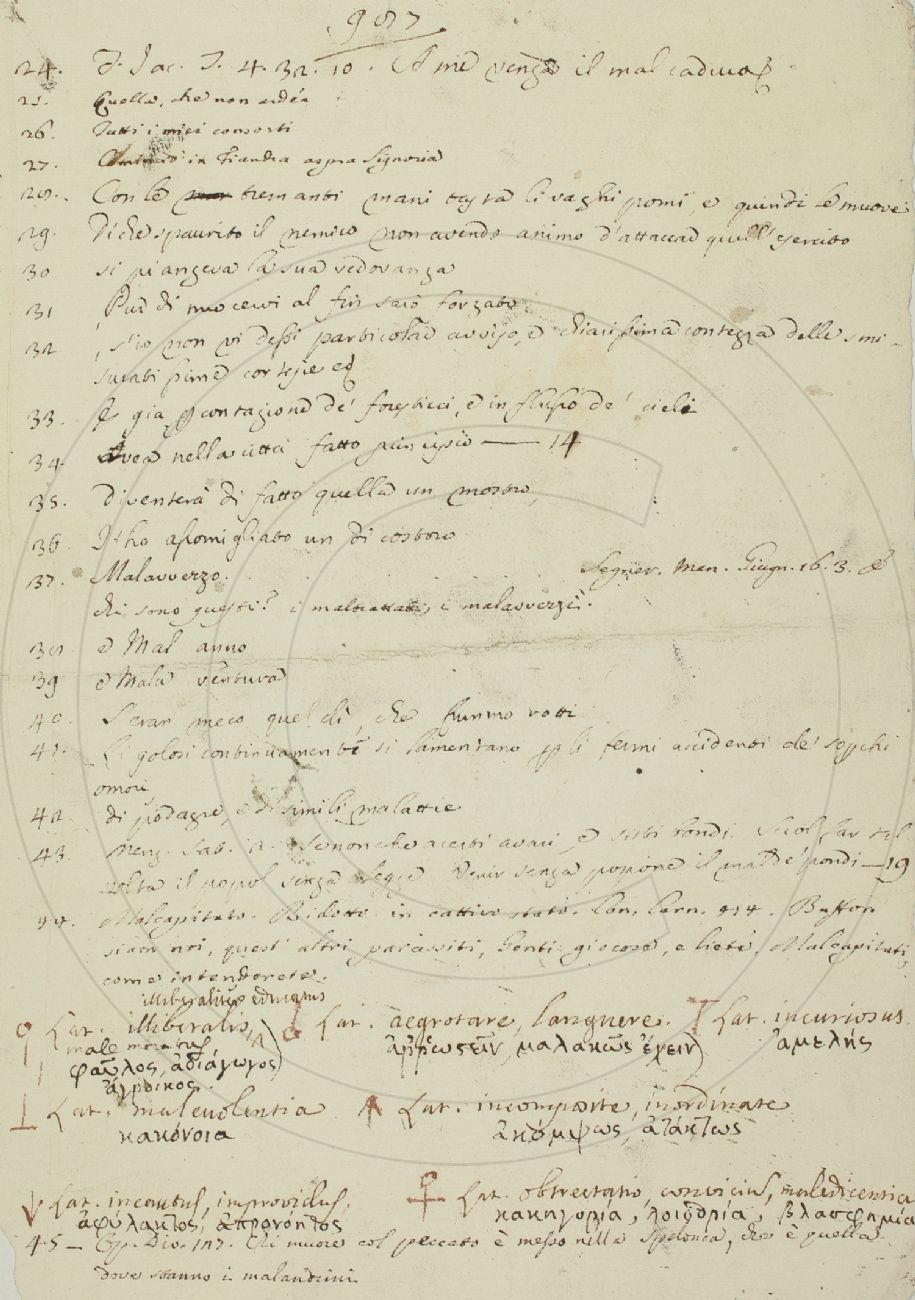 987
24. F. Jac. T. 4. 32. 10. A me venga il mal caduco
25. Quella, che non ardea
26. Tutti i miei consorti
27. in Fiandra aspra Signoria
28. Con le tremanti mani tasta li vaghi pomi, e quindi le muove
29. Di che spaurito il nemico non avendo animo d'attaccar quell'esercito
30 si piangeva la sua vedovanza
31 Pur di nuocervi al fin sarò forzato
32 , s'io non vi dessi particolar avviso, e chiarissima contezza delle smi-
suratissime cortesie ec
33. E già p contagione de' foresticci, e influsso de' cieli
34. Avea nella città fatto principio — 14
35. Diventerà di fatto quella un mostro,
36. T'ho assomigliato un di costoro
37. Malavvezzo. Segner. Man. Giugn. 16. 3. E
chi sono questi? i maltrattati, i malavvezzi.
38 e Mal anno
39 e Mala ventura
40. S'eran meco quel dì, che summo rotti
41. Li golosi continuamente si lamentano p li fermi accidenti de' sopchi
omori,
42. di podagre, e di simili malattie
43. Menz. Sat. Senonche acerbi avari, e sitibondi
volta il popol senza legge Venir senza popone il mal de' pondi — 19
44. Malcapitato. Ridotto in cattivo stato. Can. Carn. 414. Buffon
siam noi, quest' altri parassiti, Genti giocose, e liete, Malcapitati,
come intenderete.
illiberaliter educatus
Lat. illiberalis, Lat. aegrotare, languere. Lat. incuriosus.
male moratus ἀῤῥωστεῖν, μαλακῶς ἔχειν ἀμελής
φαῦλος, ἀδιάγωγος
ἄγροικος.
Lat. malevolentia Lat. incomposite, inordinate
κακόνοια ἀκόμψως, ἀτάκτως
Lat. incautus, improvidus, Lat. obtrectatio, convicium, maledicentia
ἀφύλακτος, ἀπρονόητος κακηγορία, λοιδορία, βλασφημία
45 — Esp. Div. 187. Chi muore col peccato è messo nella Spelonca, che è quella
dove stanno i malandrini